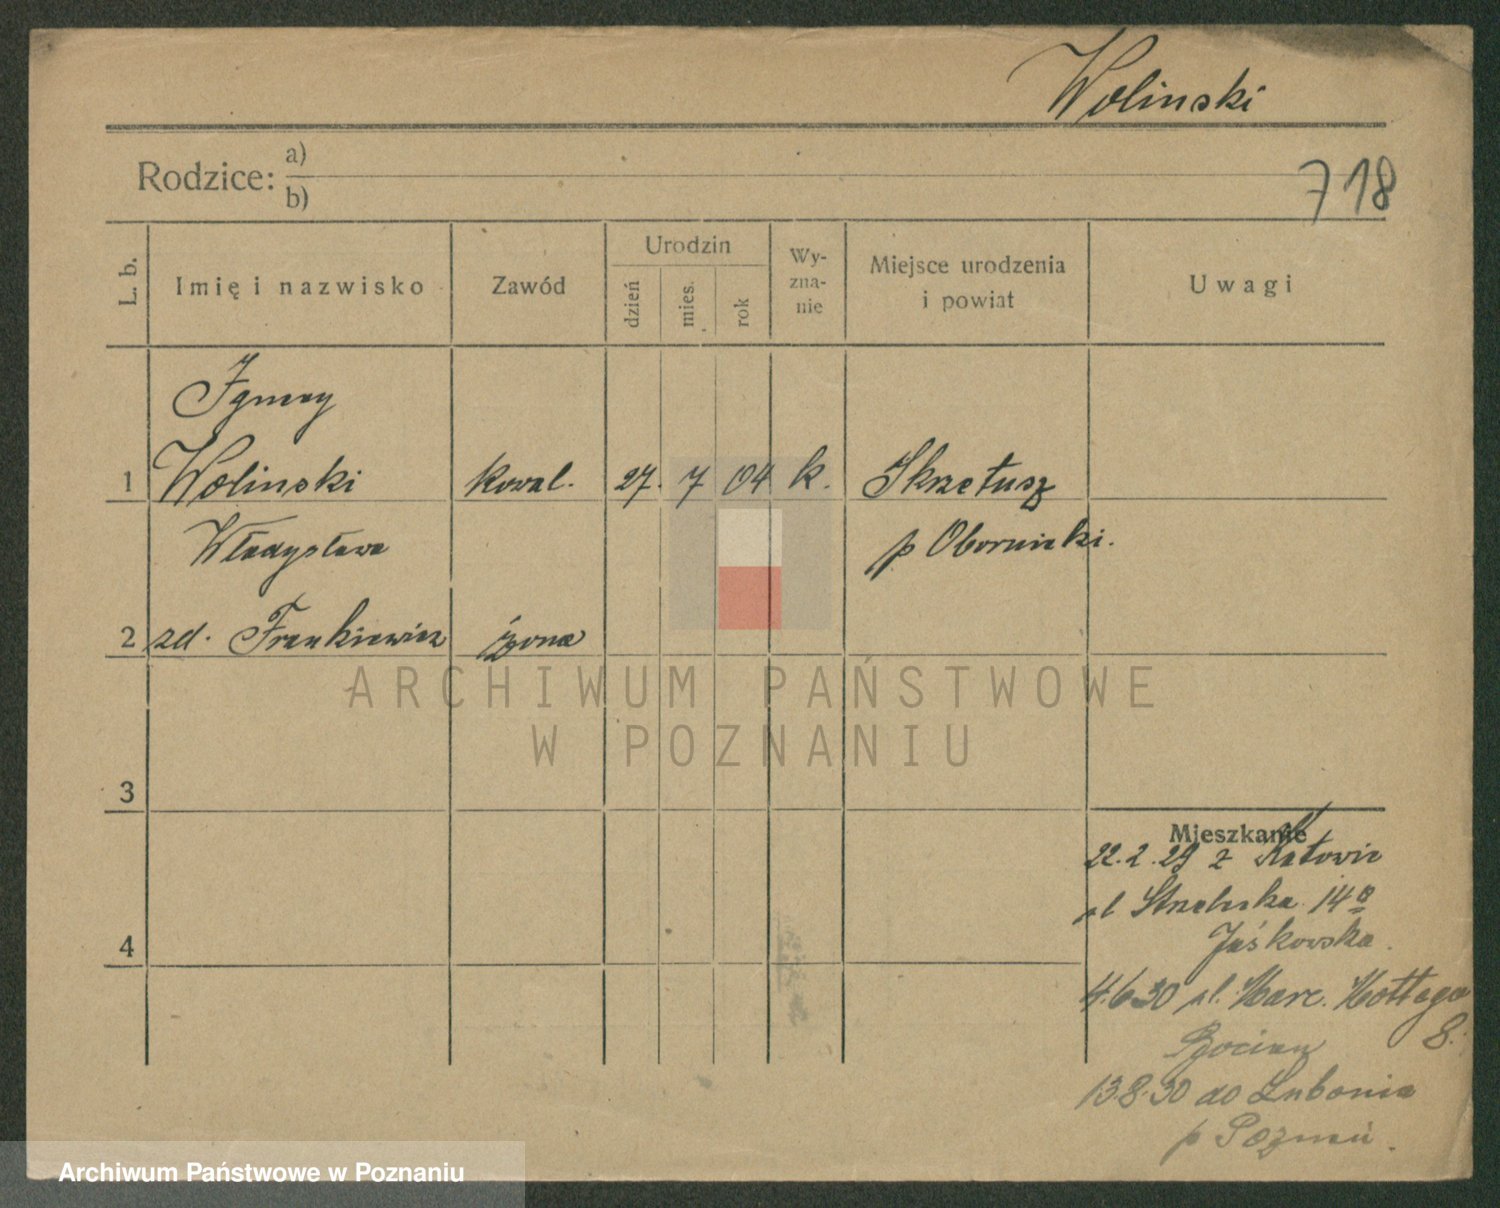 Wolinski
Rodzice: a)
b)
718
L. b.
Imię i nazwisko
Zawód
Urodzin
dzień
mies.
rok
Wy-
zna-
nie
Miejsce urodzenia
i powiat
Uwagi
Ignacy
1 Wolinski kowal. 27. 7 04 k. Skrzetusz
Władysława p Obornicki.
2 zd. Frankiewicz żona
ARCHIWUM PAŃSTWOWE
W POZNANIU
3
Mieszkanie
22.2.29 z Katowic
ul Strzelecka 14a
Jaśkowska.
4
4.6.30 ul. Marc. Mottego
8.
Bocian
13.8.30 do Lubonia
p Poznań.
Archiwum Państwowe w Poznaniu